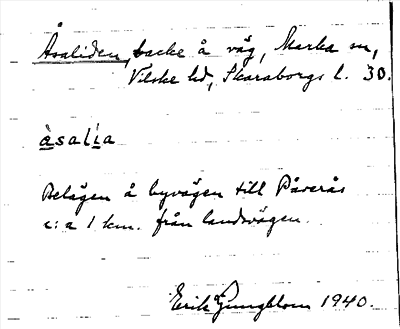 Åsaliden, backe å väg, Marka sn,
Vilske hd, Skaraborgs l. 30.
àsalìa
Belägen å byvägen till Påverås
c:a 1 km. från landsvägen.
Erik Ljungblom 1940.